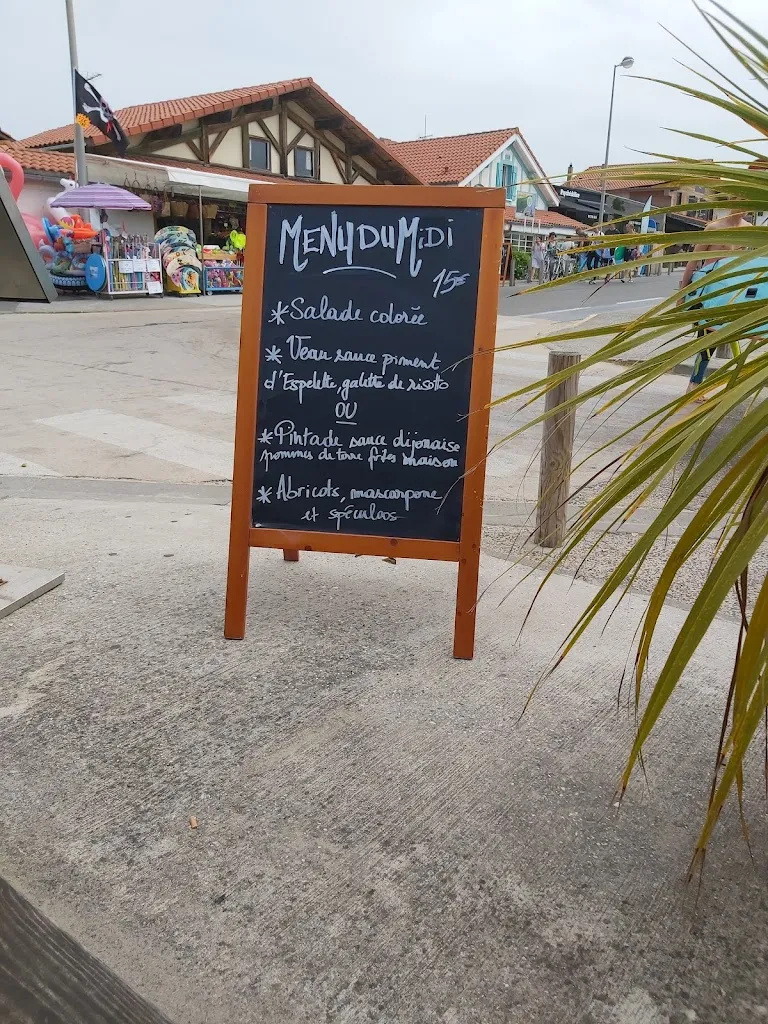 MENU DU MiDi
15€
* Salade colorée
* Veau sauce piment
d'Espelette, galette de risotto
OU
* Pintade sauce dijonaise
pommes de terre frites maison
* Abricots, mascarpone
et spéculoos